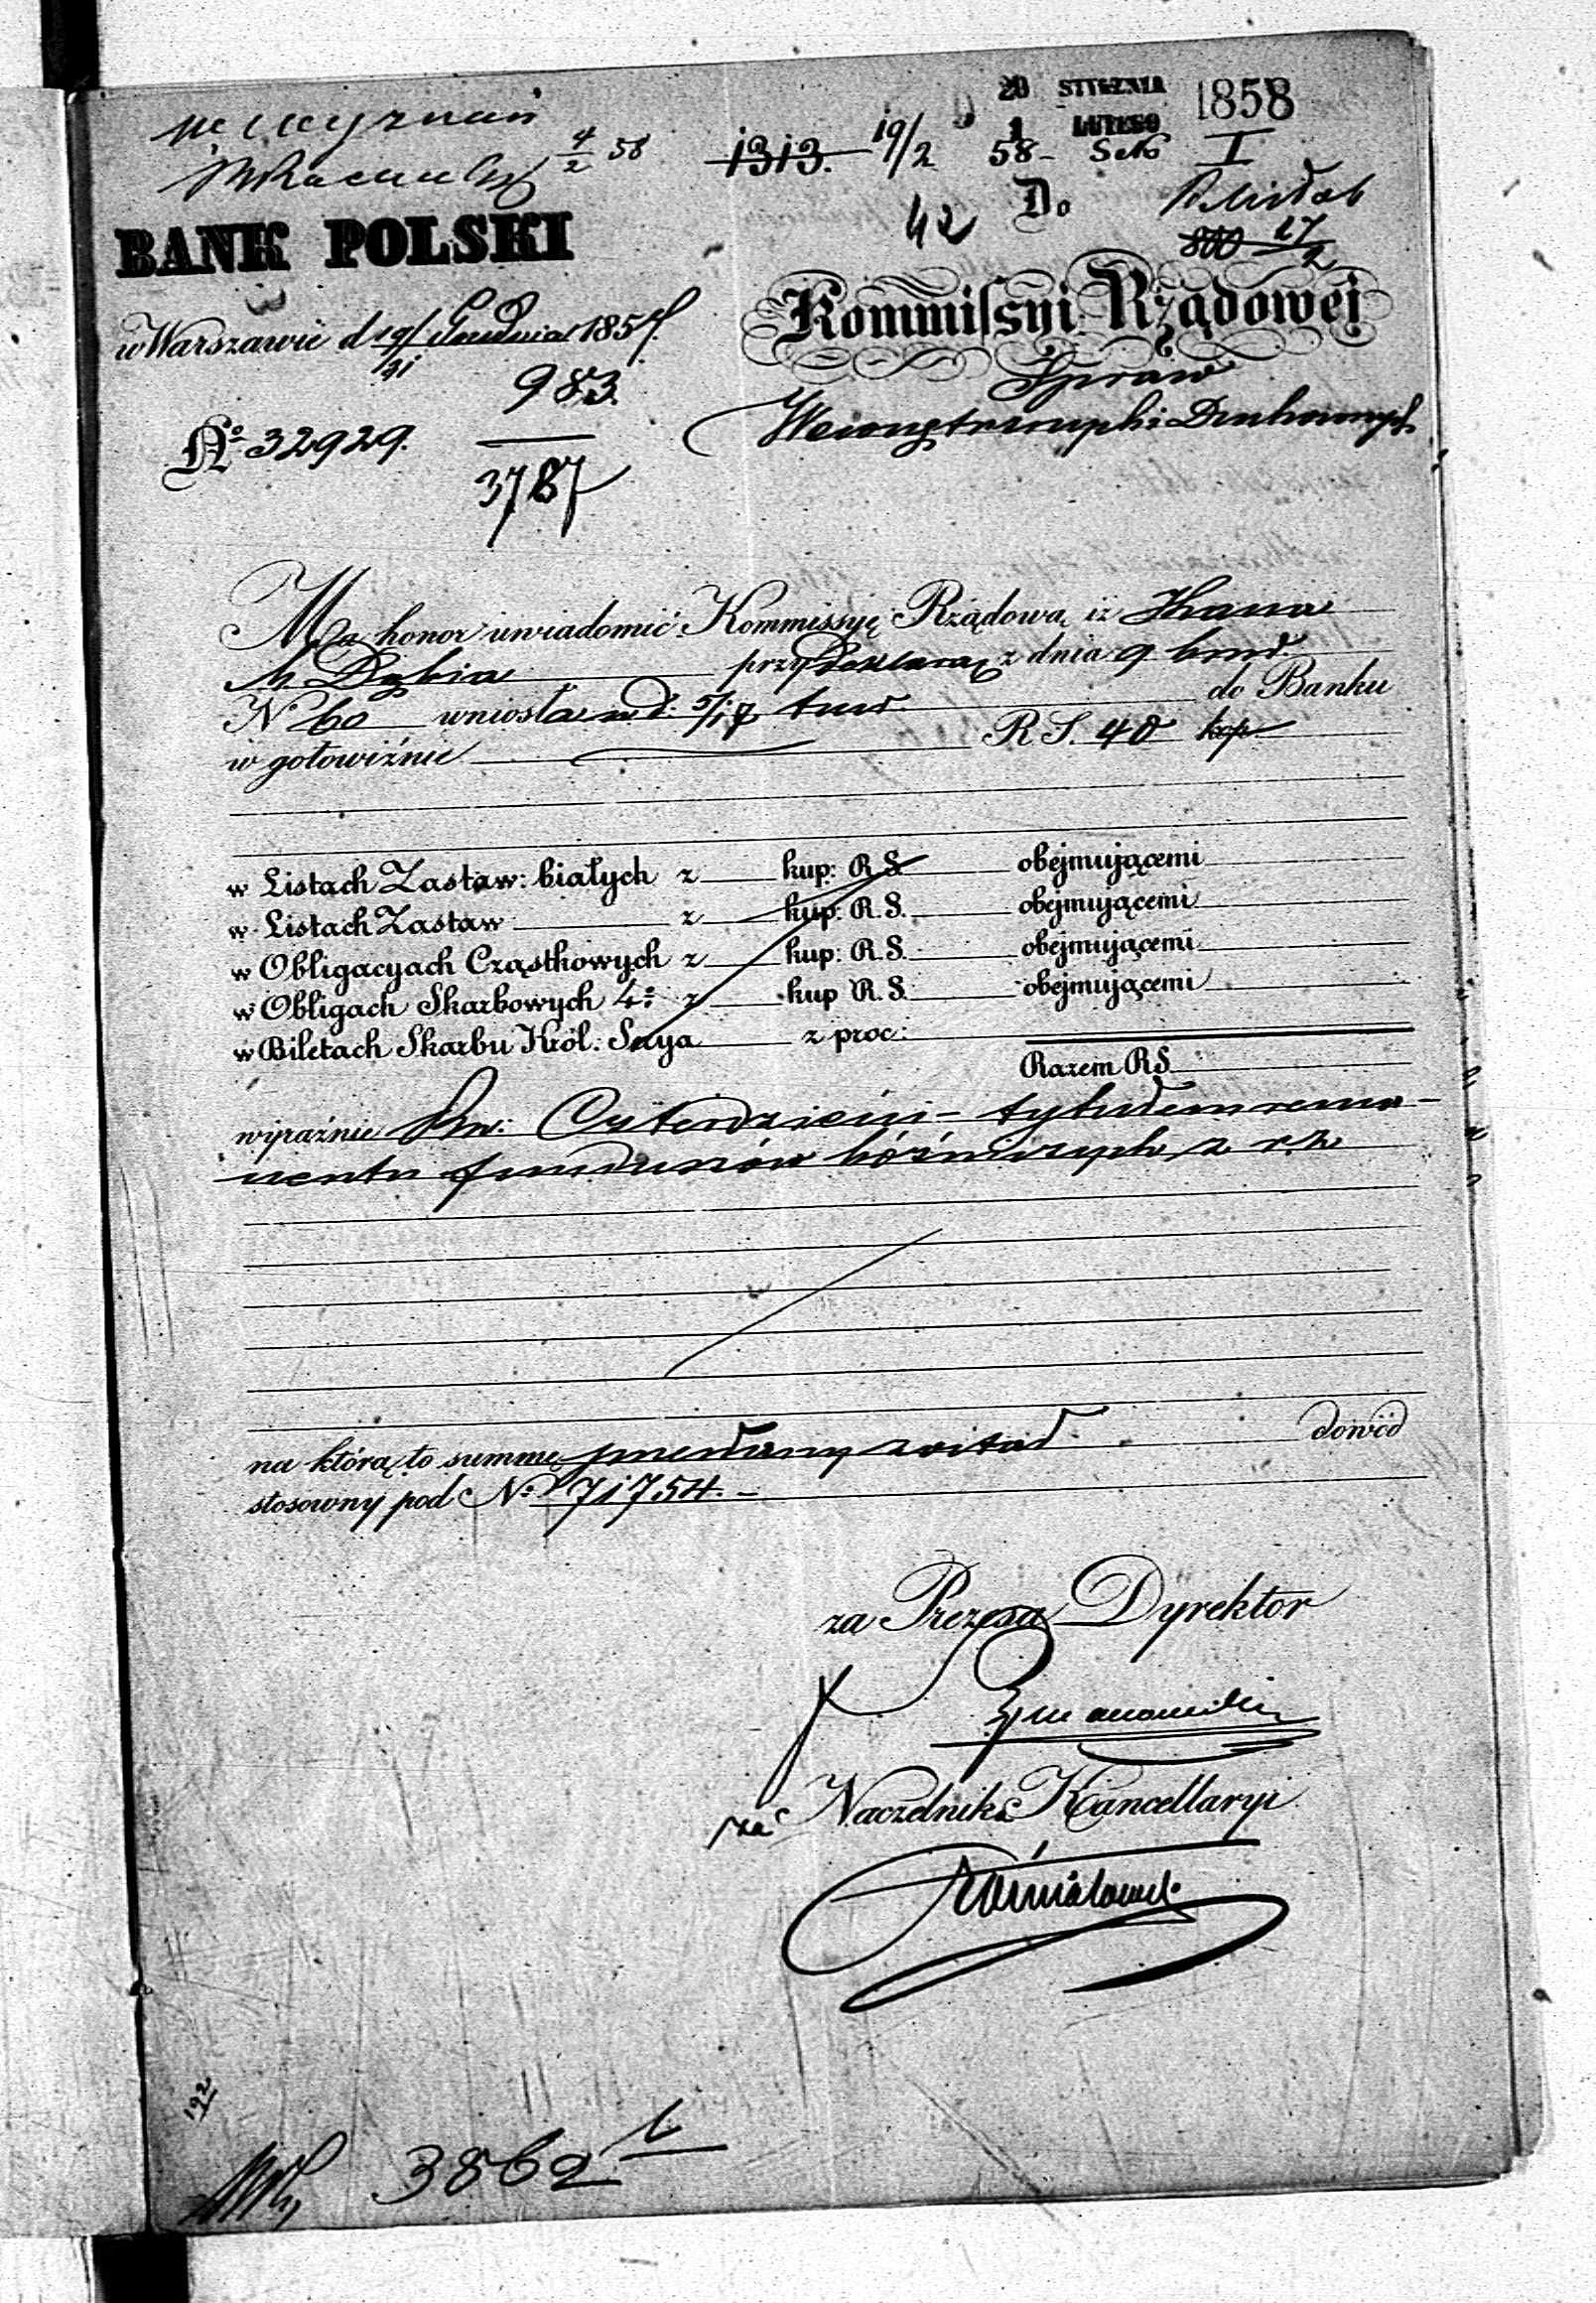 20 STYCZNIA 1858
1 LUTEGO
4/2 58
1313. 19/2 58 - I
42 Do
800 17/2
BANK POLSKI
Kommissyi Rządowej
w Warszawie d 19/31 Grudnia 1857.
Spraw
983.
Wewnętrznych i Duchownych
No 32929.
3787
Ma honor uwiadomić Kommissyję Rządową iż Kassa
M. Dąbia przy z dnia 9 b.
N 60 wniosła w d. 5/17 do Banku
w gotowiźnie R S. 40 kop
w Listach Zastaw: białych z kup: R S. obejmującemi
w Listach Zastaw z kup: R. S. obejmującemi
w Obligacyach Cząstkowych z kup: R. S. obejmującemi
w Obligach Skarbowych 4% z kup R. S. obejmującemi
w Biletach Skarbu Król: Serya z proc:
Razem RS
wyraźnie Rsr: Czterdzieści - tytułem rema-
nentu funduszów bóżniczych z r. z.
na którą to summę dowód
stosowny pod No 71754. -
za Prezesa Dyrektor
za Naczelnika Kancellaryi
192
3862